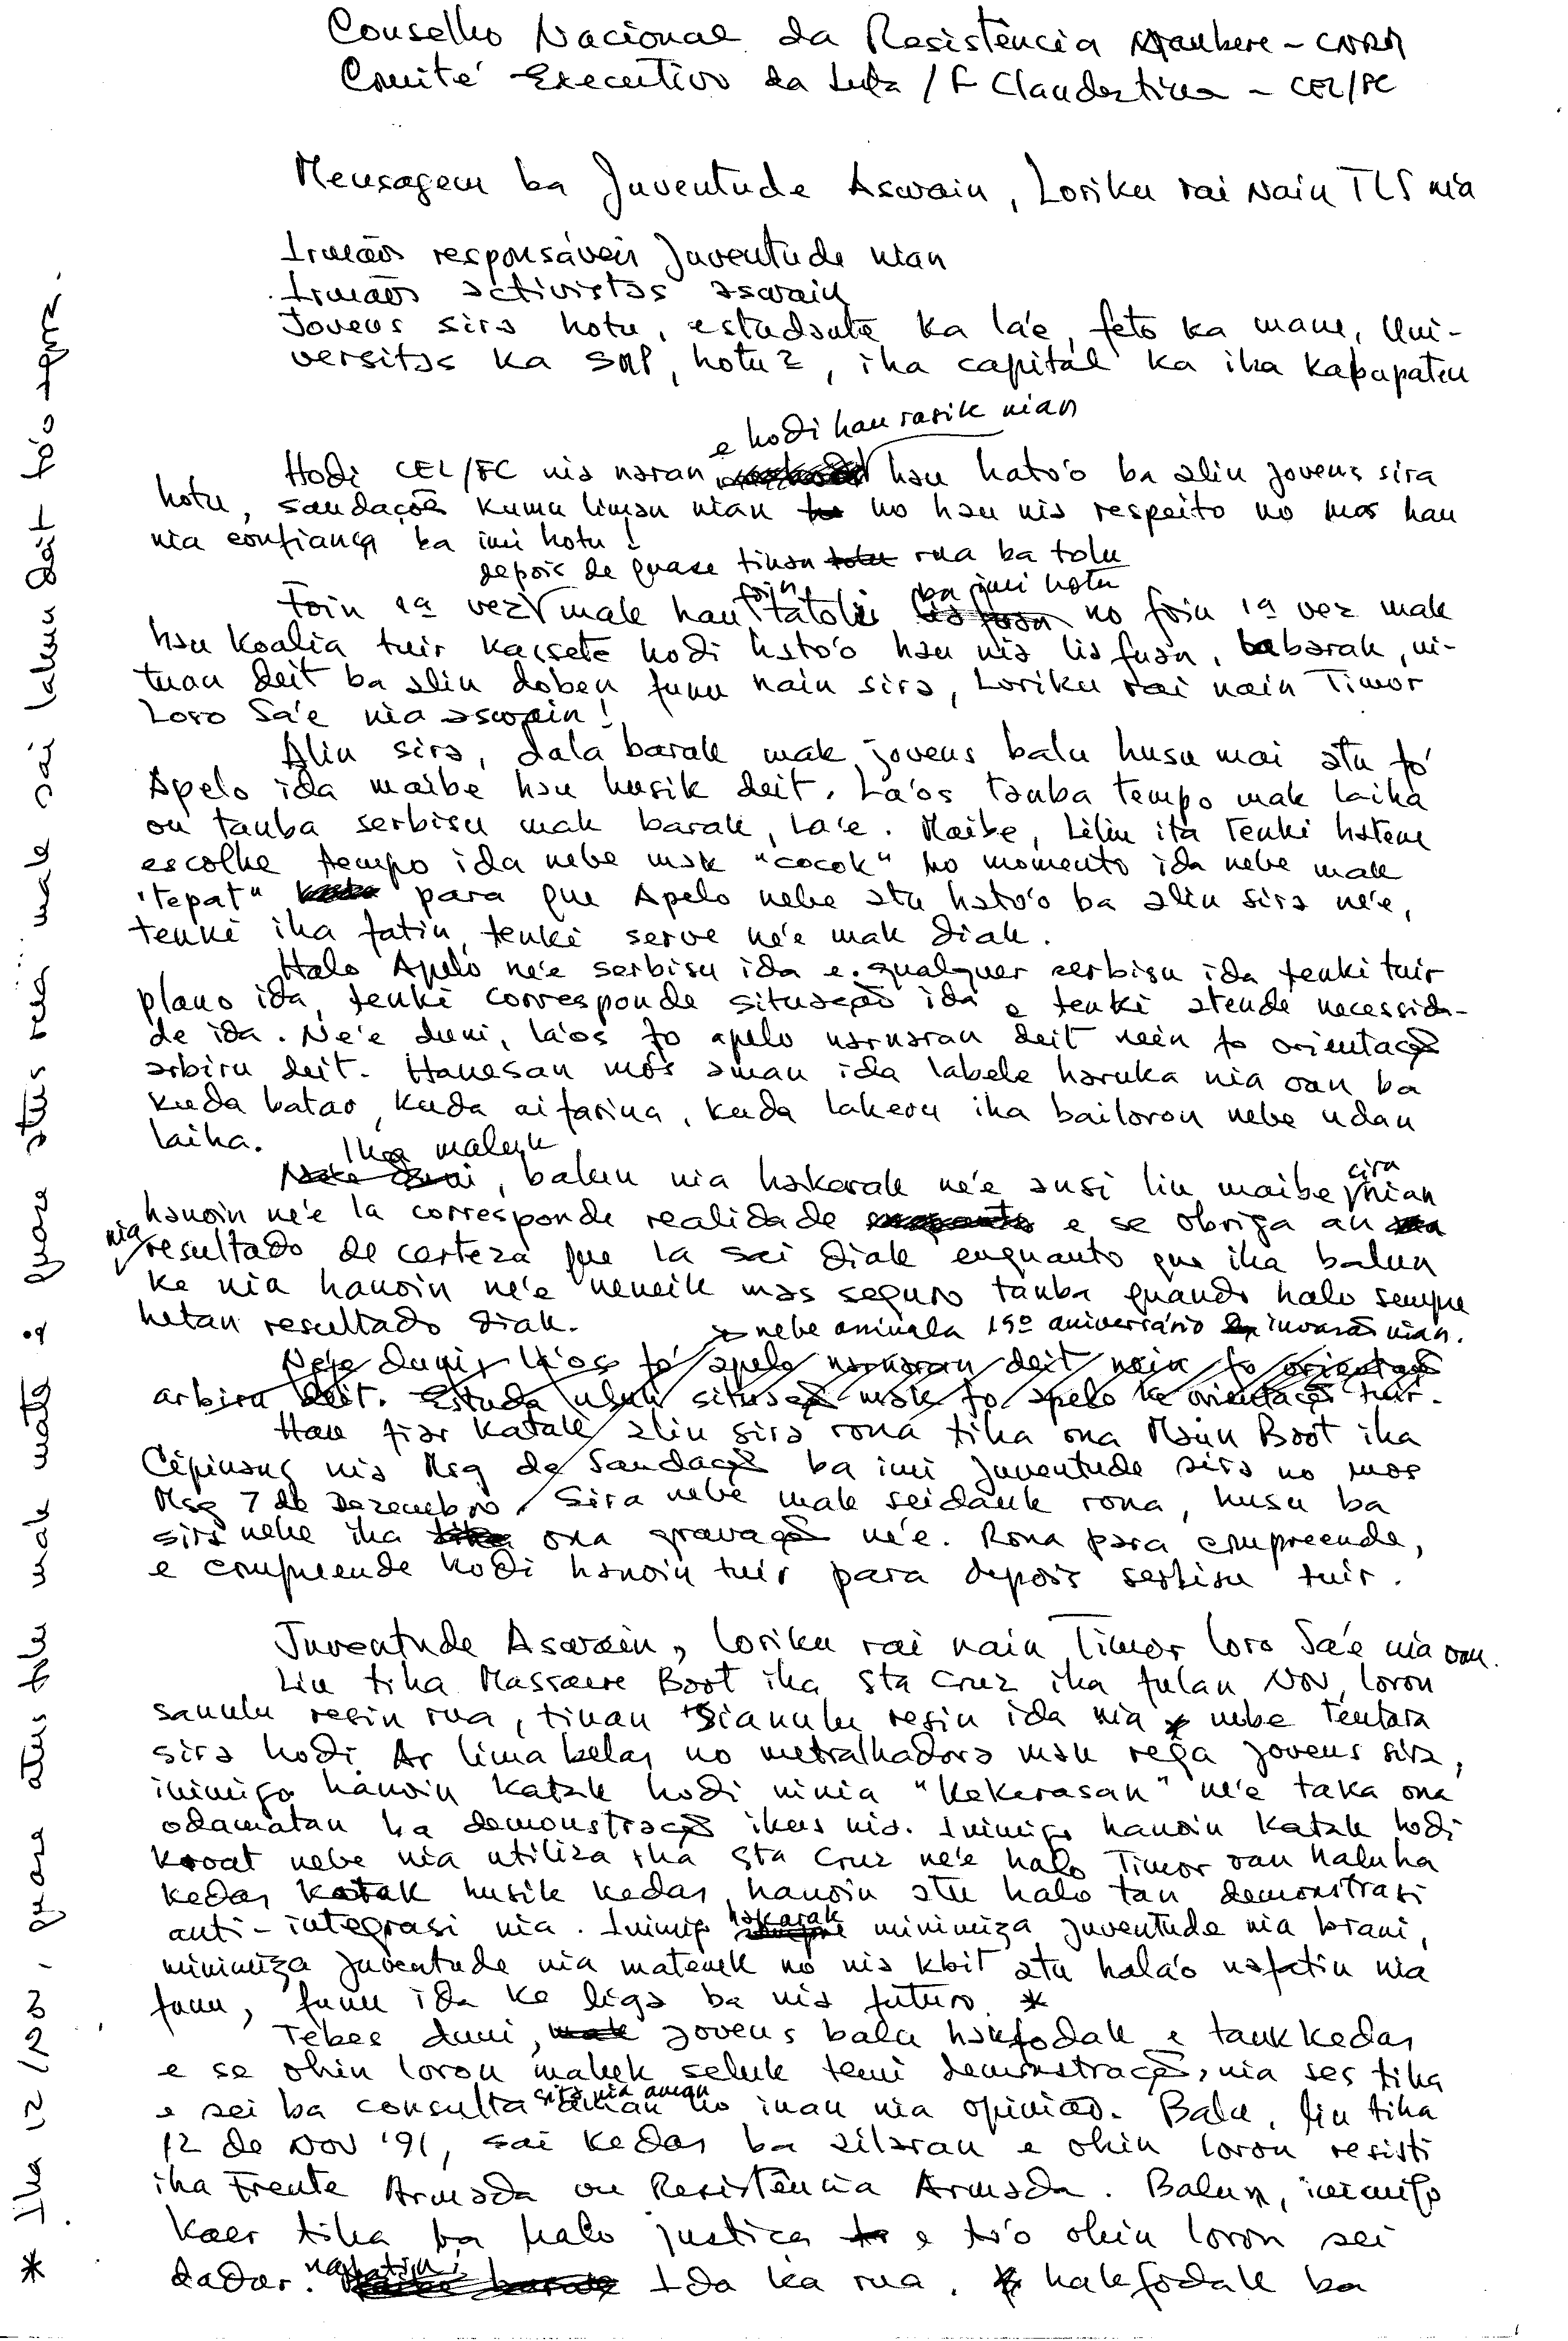 Conselho Nacional da Resistência Maubere - CNRM
Comité Executivo da Luta / F Clandestina - CEL/FC
Mensagem ba Juventude Aswain, Loriku rai nain TLS nia
Irmãos responsáveis Juventude nian
Irmãos activistas aswain
Jovens sira hotu, estudante ka la'e, feto ka mane, Uni-
versitas ka SMP, hotu2, iha capital ka iha kabupaten
e hodi hau rasik nian
Hodi CEL/FC nia naran hau hato'o ba alin jovens sira
hotu, saudações kumu liman nian no hau nia respeito no mos hau
nia confiança ba imi hotu!
depois de quase tinan rua ba tolu
foin ba imi hotu
Foin 1ª vez mak hau tatoli no foin 1ª vez mak
hau koalia tuir kassete hodi hato'o hau nia lia fuan, labarak, ni-
tuan deit ba alin doben funu nain sira, Loriku rai nain Timor
Loro Sa'e nia aswain!
Alin sira, dala barak mak jovens balu husu mai atu fó
Apelo ida maibe hau husik deit. La'os tanba tempo mak laiha
ou tanba serbisu mak barak, la'e. Maibe, Liliu ita tenki hatene
escolhe tempo ida nebe mak "cocok" no momento ida nebe mak
"tepat" para que Apelo nebe atu hato'o ba alin sira ne'e,
tenki iha fatin, tenki serve ne'e mak diak.
Halo Apelo ne'e serbisu ida e qualquer serbisu ida tenki tuir
plano ida, tenki corresponde situação ida e tenki atende necessida-
de ida. Ne'e duni, la'os fo apelo narnaran deit nein fo orientação
arbiru deit. Hanesan mós aman ida labele haruka nia oan ba
kuda batar, kuda aifarina, kuda lakeru iha bailoron nebe udan
laiha.
Iha malun
, balun nia hakarak ne'e ansi liu maibe sira nian
hanoin ne'e la corresponde realidade e se obriga an
nia resultado de certeza que la sai diak enquanto que iha balun
ke nia hanoin ne'e neneik mas seguro tanba quando halo sempre
hetan resultado diak.
nebe aminala 19º aniversário invasão nian.
Ne'e duni, la'os fó apelo narnaran deit nein fo orientação
arbiru deit. Estuda uluk situação mak fo apelo ke orientação tuir.
Hau fiar katak alin sira rona tiha ona Maun Boot iha
Cipinang nia Msg de Saudação ba imi juventude sira no mos
Msg 7 de Dezembro. Sira nebe mak seidauk rona, husu ba
sira nebe iha ona gravação ne'e. Rona para compreende,
e compreende hodi hanoin tuir para depois serbisu tuir.
Juventude Aswain, loriku rai nain Timor loro Sa'e nia oan.
Liu tiha Massacre Boot iha Sta Cruz iha fulan Nov, loron
sanulu resin rua, tinan sianulu resin ida nia nebe Tentara
sira hodi Ar lima belas no metralhadora mak rega jovens sira,
inimigo hanoin katak hodi ninia "kekerasan" ne'e taka ona
odamatan ba demonstração ikus nia. Inimigo hanoin katak hodi
kroat nebe nia utiliza iha Sta Cruz ne'e halo Timor oan haluha
kedas katak husik kedas, hanoin atu halo tan demonstrasi
anti-integrasi nia. Inimigo hakarak minimiza juventude nia brani,
minimiza juventude nia matenek no nia kbit atu hala'o nafatin nia
funu, funu ida ke liga ba nia futuro. *
Tebes duni, jovens balu hakfodak e tauk kedas
e se ohin loron mahek seluk temi demonstração, nia ses tiha
e sei ba consulta sira nia aman no inan nia opinião. Balu, liu tiha
12 de Nov '91, sai kedas ba ailaran e ohin loron resisti
iha Frente Armada ou Resistência Armada. Balun, inimigo
kaer tiha ba halo justiça e to'o ohin loron sei
dadar nafatin. Ida ka rua, hakfodak ba
* Iha 12/Nov, quase atus tolu mak mate; quase atus rua mak sai lakon deit to'o agora.